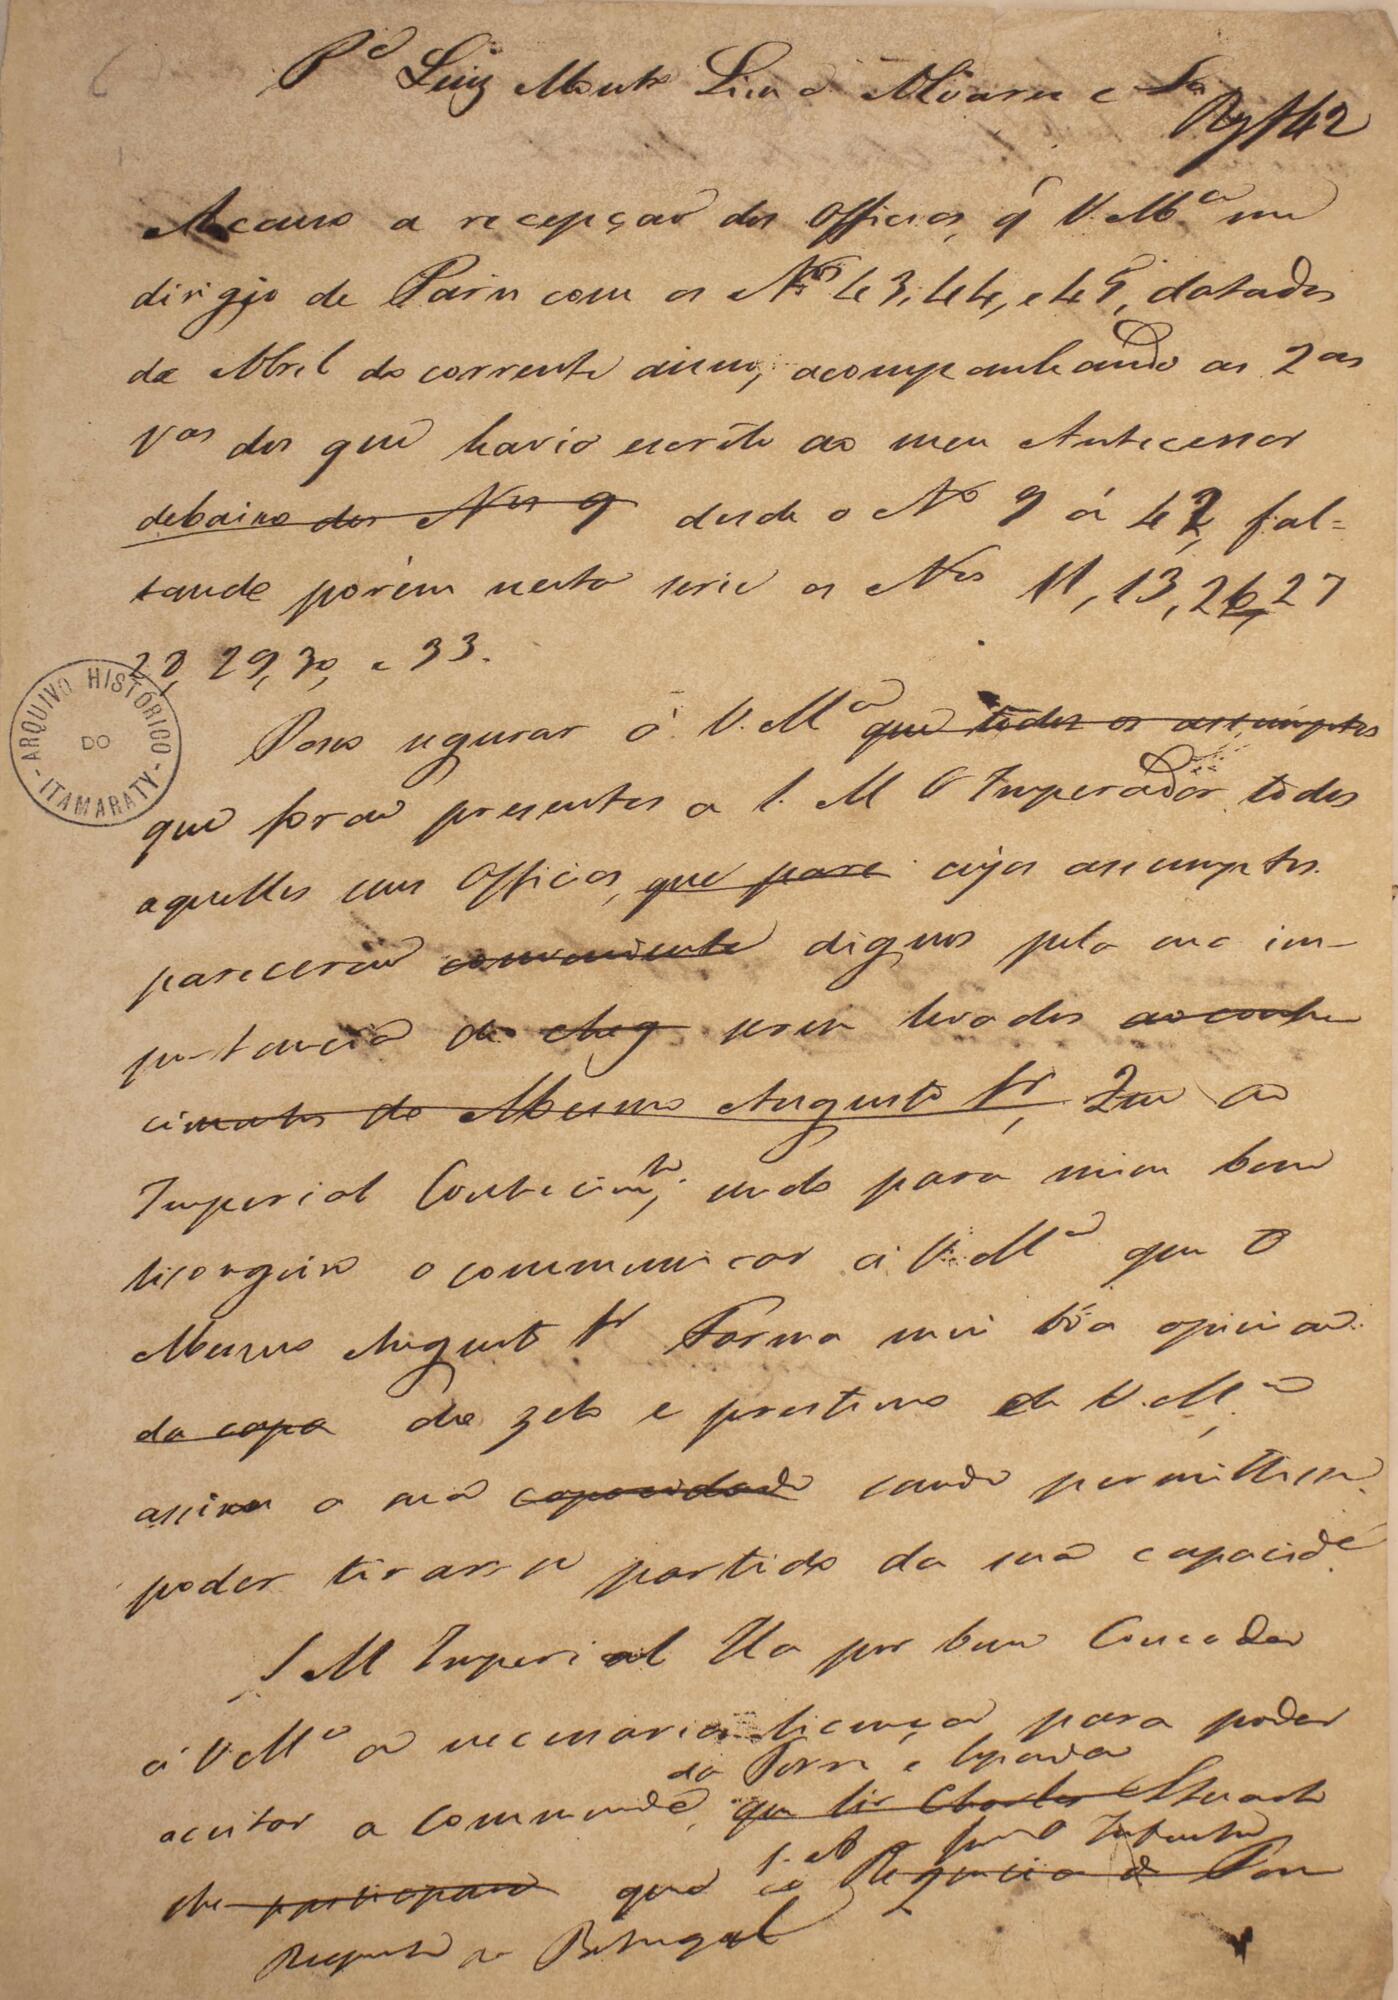 Pª Luiz Mout° Lima Alvares e Sª
Rg f 42
Accuso a recepção dos Officios, q̃ V. Mce me
dirigio de Paris com os Nos 43, 44, e 45, datados
de Abril do corrente anno, acompanhando as 2as
Vas dos que havia escrito ao meu Antecessor
debaixo dos Nos 9 desde o No 9 á 42, fal=
tando porém nesta serie os Nos 11, 13, 26, 27
28, 29, 30, e 33.
Posso segurar á V. Mce que todos os assumptos
que forão presentes a S. M. O Imperador todos
aquelles seus Officios, que pare cujos assumptos
parecerão conveniente dignos pela sua im-
portancia de cheg serem levados ao conhe
cimento do Mesmo Augusto Sr, ao
Imperial Conhecimto; sendo para mim bem
lisongeiro o communicar á V. Mce que O
Mesmo Augusto Sr Forma mui bôa opinião
da capa do zelo e prestimo de V. Mce
assim a sua capacidade saude permittisse
poder tirar-se partido da sua capacide
S M Imperial Ha por bem Conceder
á V. Mce a necessaria licença para poder
da Torre e Espada
aceitar a Commenda, que Sir Charles Stuart
S. A. a Infanta
lhe participou que a Regencia de Por
Regente de Portugal
ARQUIVO HISTÓRICO
DO
ITAMARATY